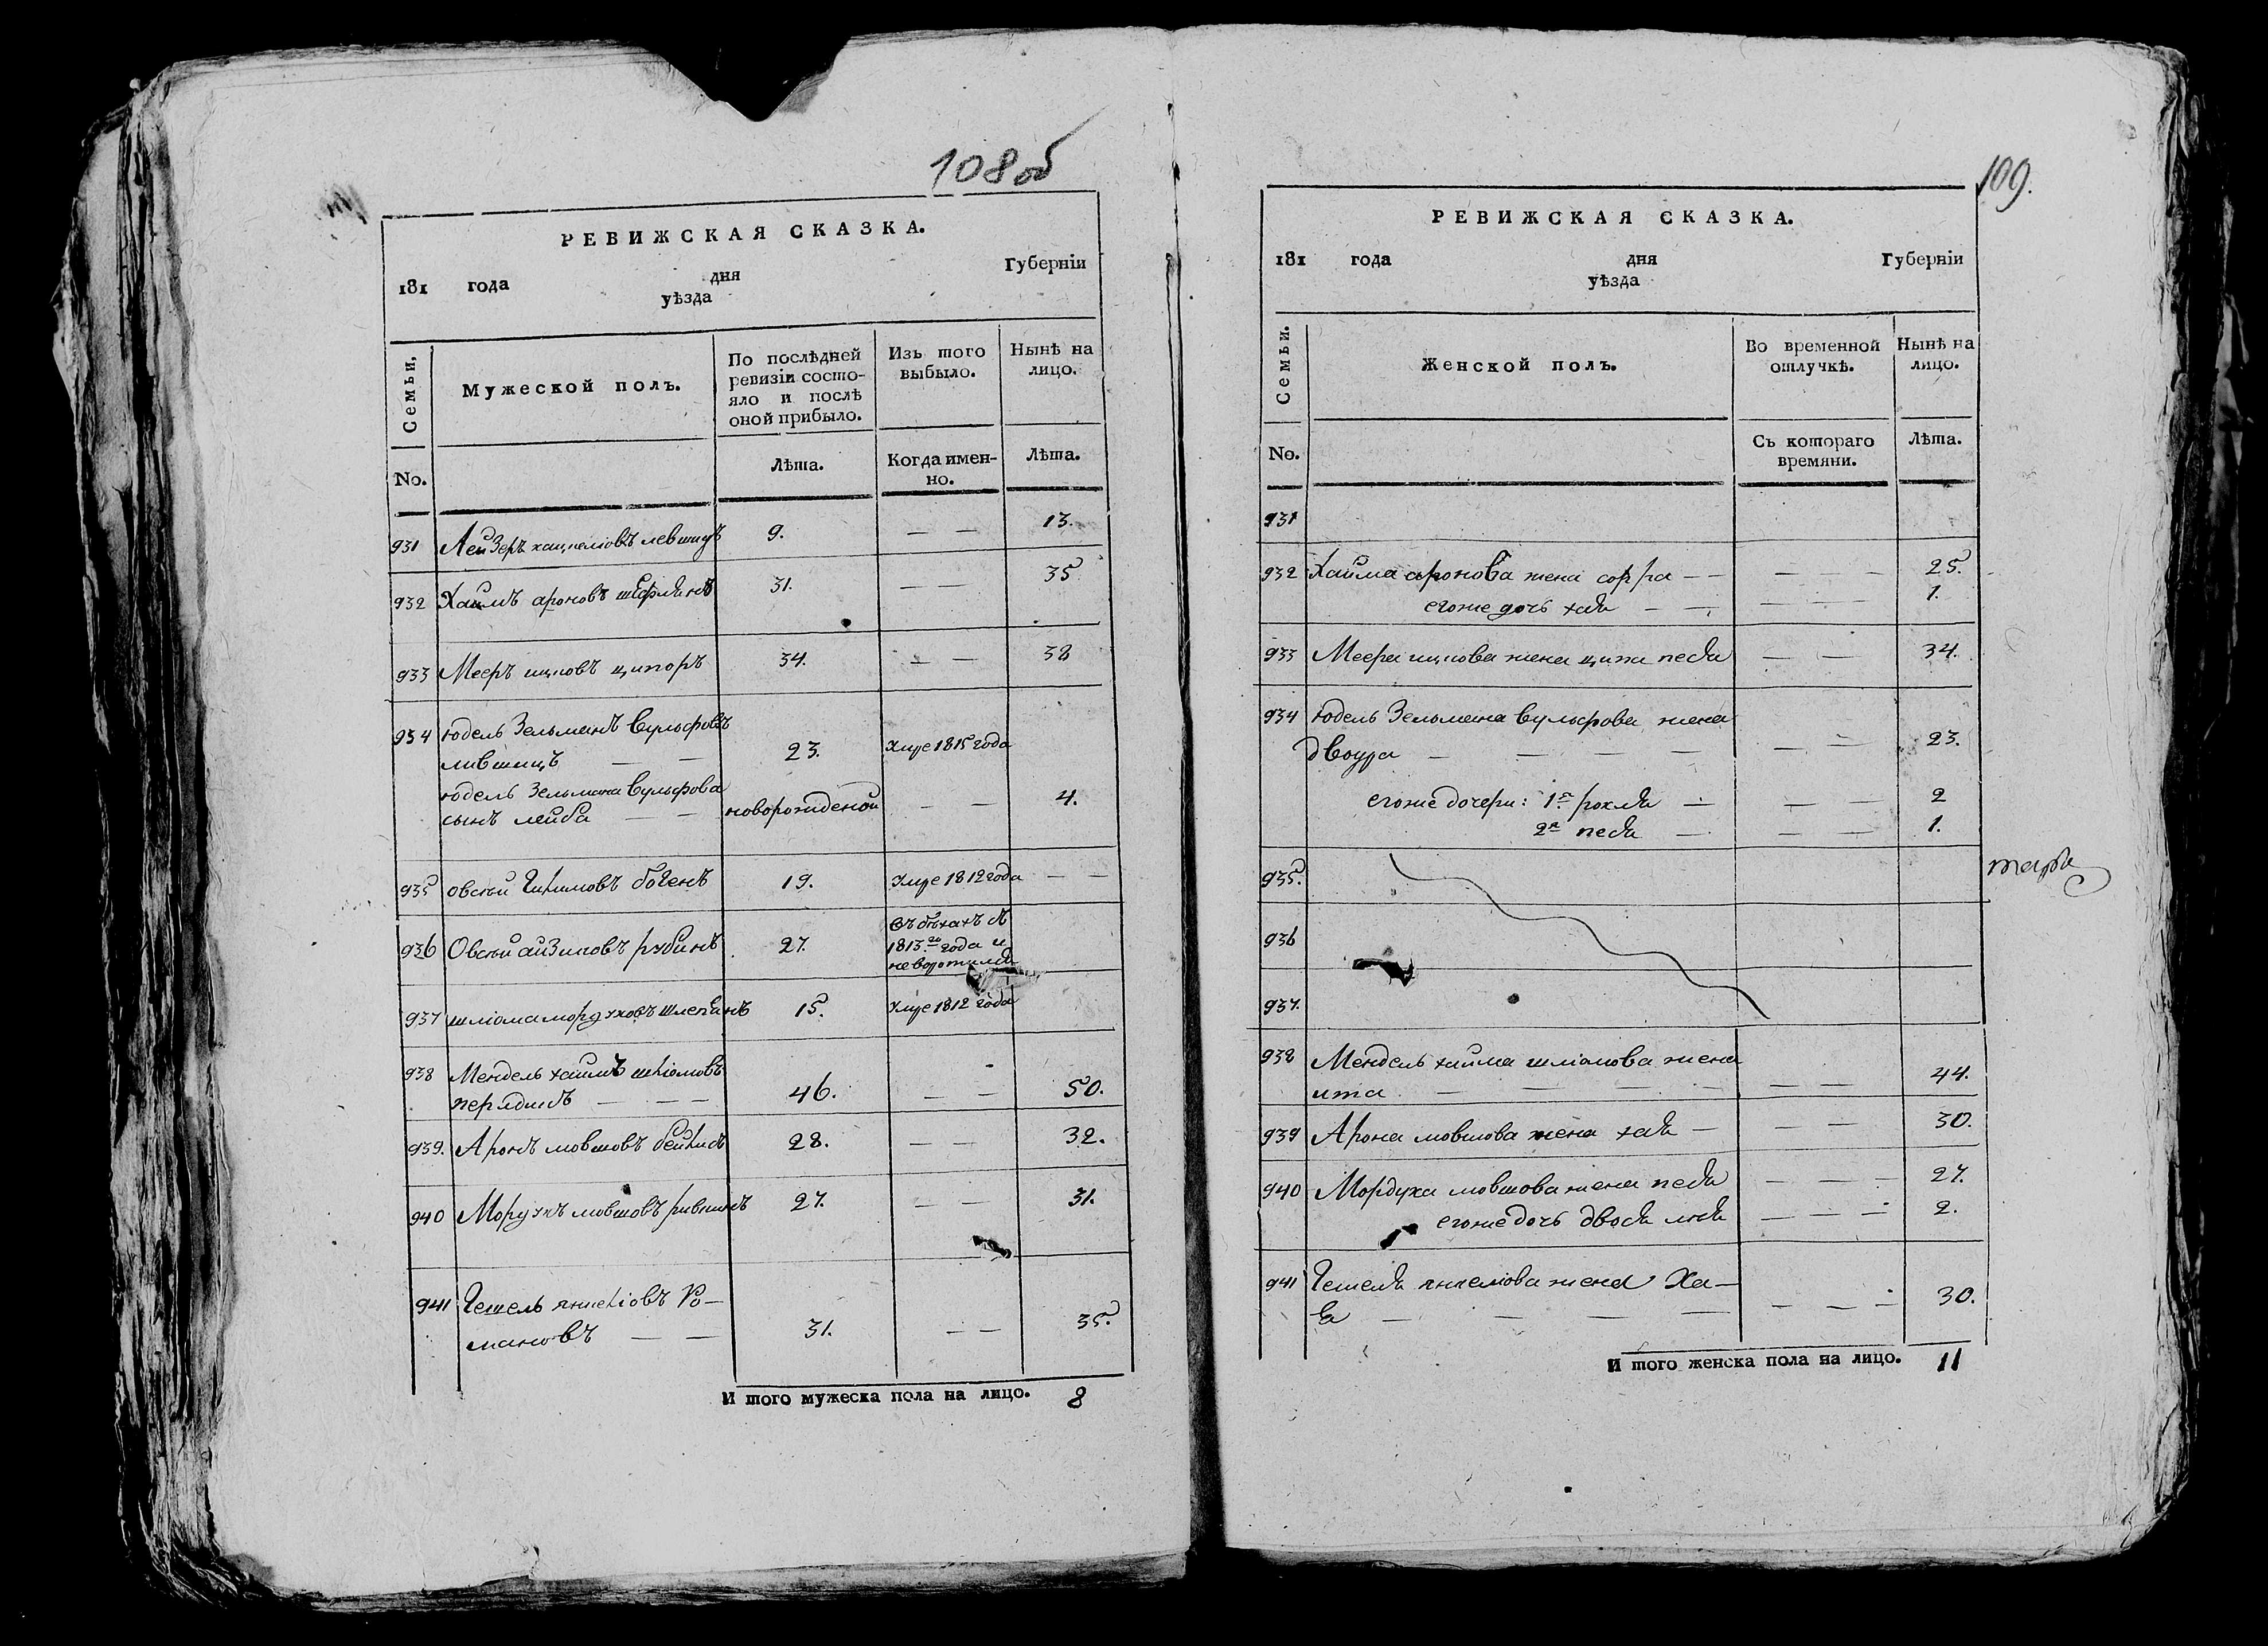 108 об
РЕВИЖСКАЯ СКАЗКА.
181 года дня Губерніи
уѣзда
Семьи.
Мужеской полъ.
По послѣдней
ревизіи состо-
яло и послѣ
оной прибыло.
Изъ того
выбыло.
Нынѣ на
лицо.
No.
Лѣта.
Когда имен-
но.
Лѣта.
931 Лейзеръ 9. — — 13.
932 Хаимъ ароновъ 31. — — 35
933 Мееръ ицковъ ципоръ 34. — — 38
934 Юдель Зельманъ Вульфовъ
лившицъ — — 23. Умре 1815 года
юдель Зельмана Вульфова
сынъ лейба — — новорожденой — — 4.
935 овсѣй 19. Умре 1812 года — —
936 Овсѣй айзиковъ рубинъ 27. Въ бѣгахъ съ
1813го года и
неворотился
937 шліома мордуховъ 15. Умре 1812 года
938 Мендель хаимъ шліомовъ
— — — 46. — — 50.
939. Аронъ мовшовъ 28. — — 32.
940 Мордухъ мовшовъ ривкинъ 27. — — 31.
941 Гешель янкеліовъ Ро—
мановъ — — 31. — — 35.
И того мужеска пола на лицо. 8
109.
РЕВИЖСКАЯ СКАЗКА.
181 года дня Губерніи
уѣзда
Семьи.
Женской полъ.
Во временной
отлучкѣ.
Нынѣ на
лицо.
No.
Съ котораго
времяни.
Лѣта.
931
932 Хаима аронова жена сорра — — — — 25.
егоже дочь хая — — — — — 1.
933 Меера ицкова жена ципа песя — — 34.
934 Юдель Зельмана вульфова жена
двоура — — — — — — 23.
егоже дочери: 1я рохля — — — 2
2я песя — — — 1.
935.
936
937.
938 Мендель хаима шліомова жена
ита — — — — — — 44.
939 Арона мовшова жена хая — — — 30.
940 Мордуха мовшова жена песя — — — 27.
егоже дочь двося — — — 2.
941 Гешеля янкеліова жена Ха—
я — — — — — — — 30.
И того женска пола на лицо. 11